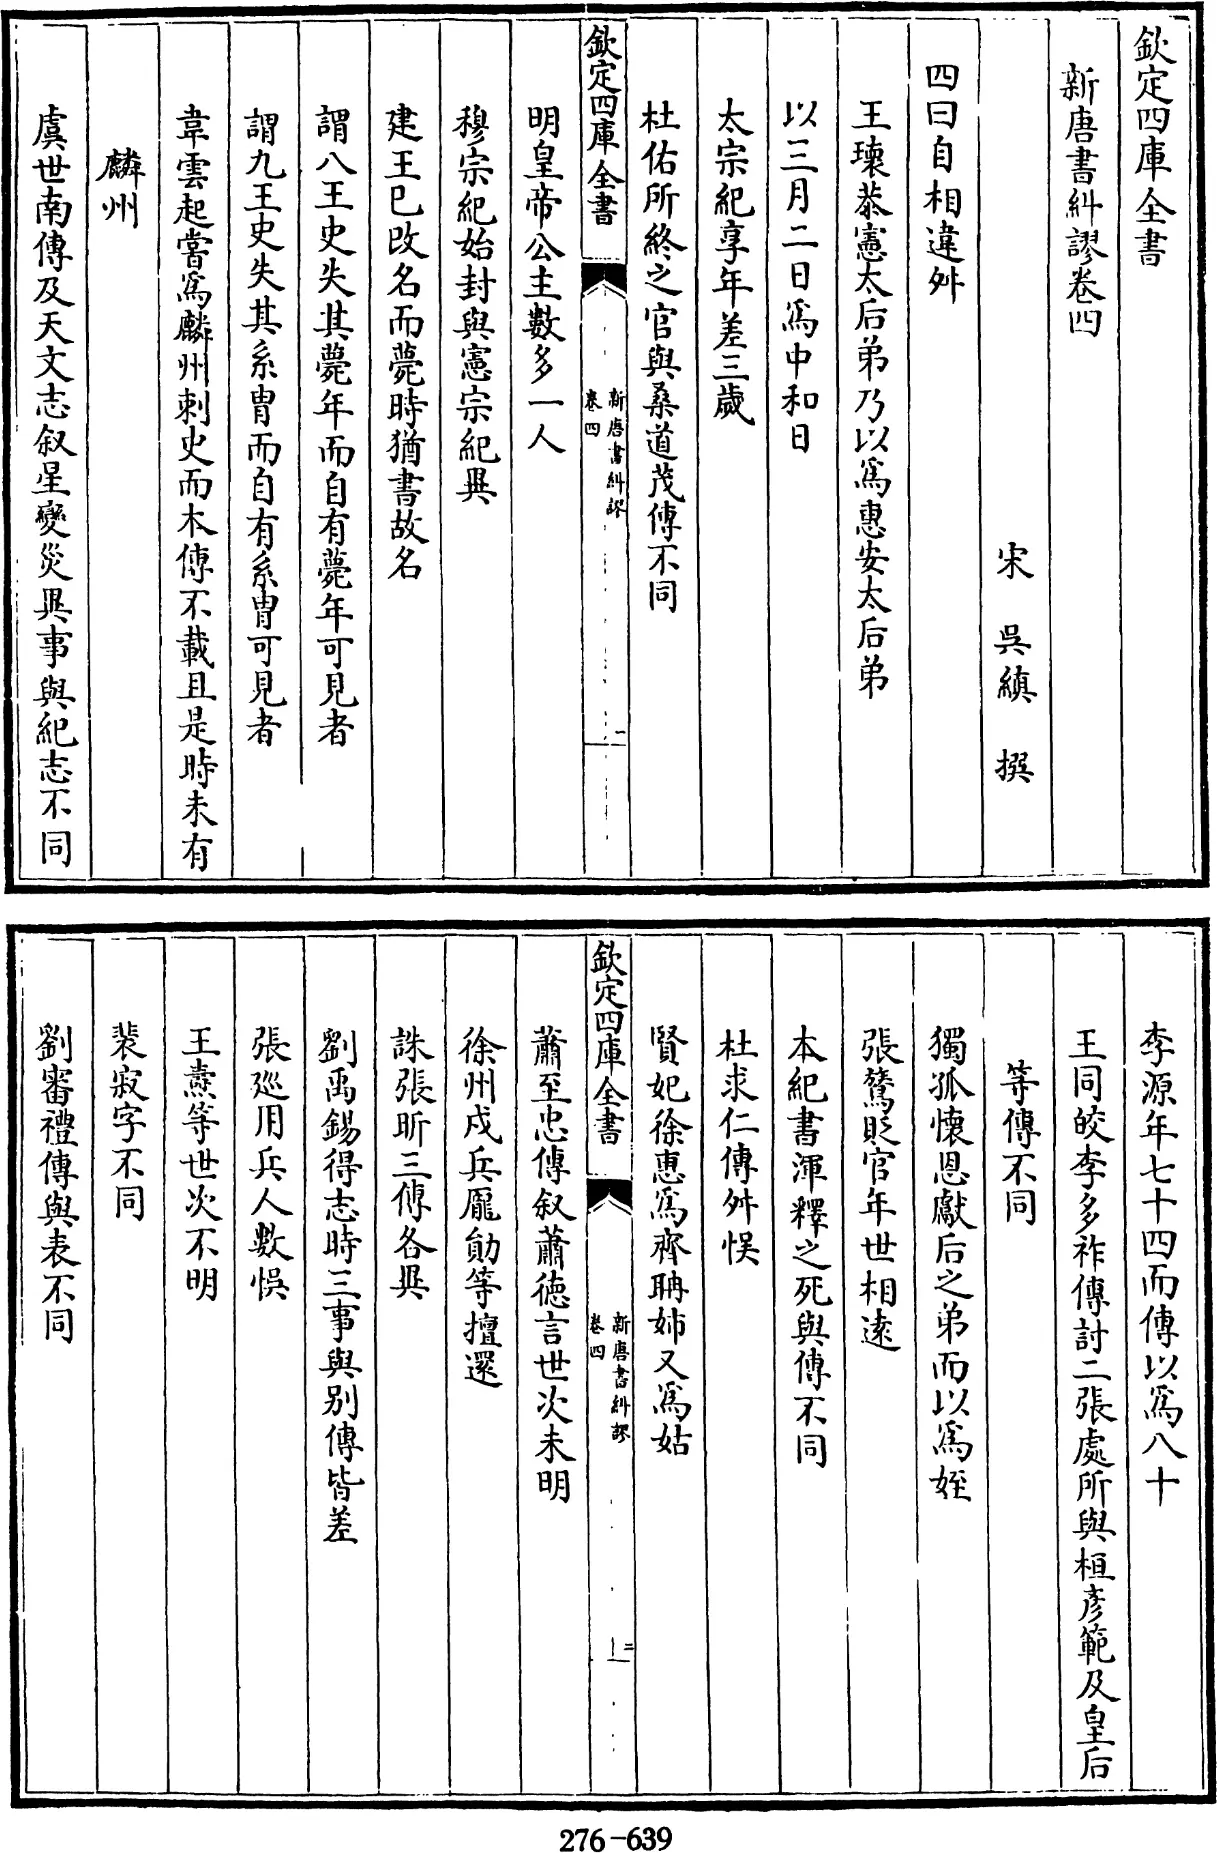 欽定四庫全書
新唐書糾謬卷四
宋 吳縝 撰
四曰自相違舛
王瓌恭憲太后弟乃以爲惠安太后弟
以三月二日爲中和日
太宗紀享年差三歲
杜佑所終之官與桑道茂傳不同
欽定四庫全書
新唐書糾謬
卷四
一
明皇帝公主數多一人
穆宗紀始封與憲宗紀異
建王已改名而薨時猶書故名
謂八王史失其薨年而自有薨年可見者
謂九王史失其系胄而自有系胄可見者
韋雲起嘗爲麟州刺史而本傳不載且是時未有
麟州
虞世南傳及天文志叙星變災異事與紀志不同
李源年七十四而傳以爲八十
王同皎李多祚傳討二張處所與桓彥範及皇后
等傳不同
獨孤懷恩獻后之弟而以爲姪
張鷟貶官年世相逺
本紀書渾釋之死與傳不同
杜求仁傳舛悮
賢妃徐惠爲齊聃姊又爲姑
欽定四庫全書
新唐書糾謬
卷四
二
蕭至忠傳叙蕭德言世次未明
徐州戍兵龎勛等擅還
誅張昕三傳各異
劉禹錫得志時三事與别傳皆差
張巡用兵人數悞
王燾等世次不明
裴寂字不同
劉審禮傳與表不同
276-639